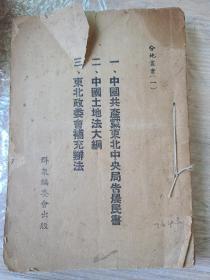 分地叢書(一)
一、中國共產黨東北中央局告農民書
二、中國土地法大綱
三、東北政委會補充辦法
群衆編委會出版